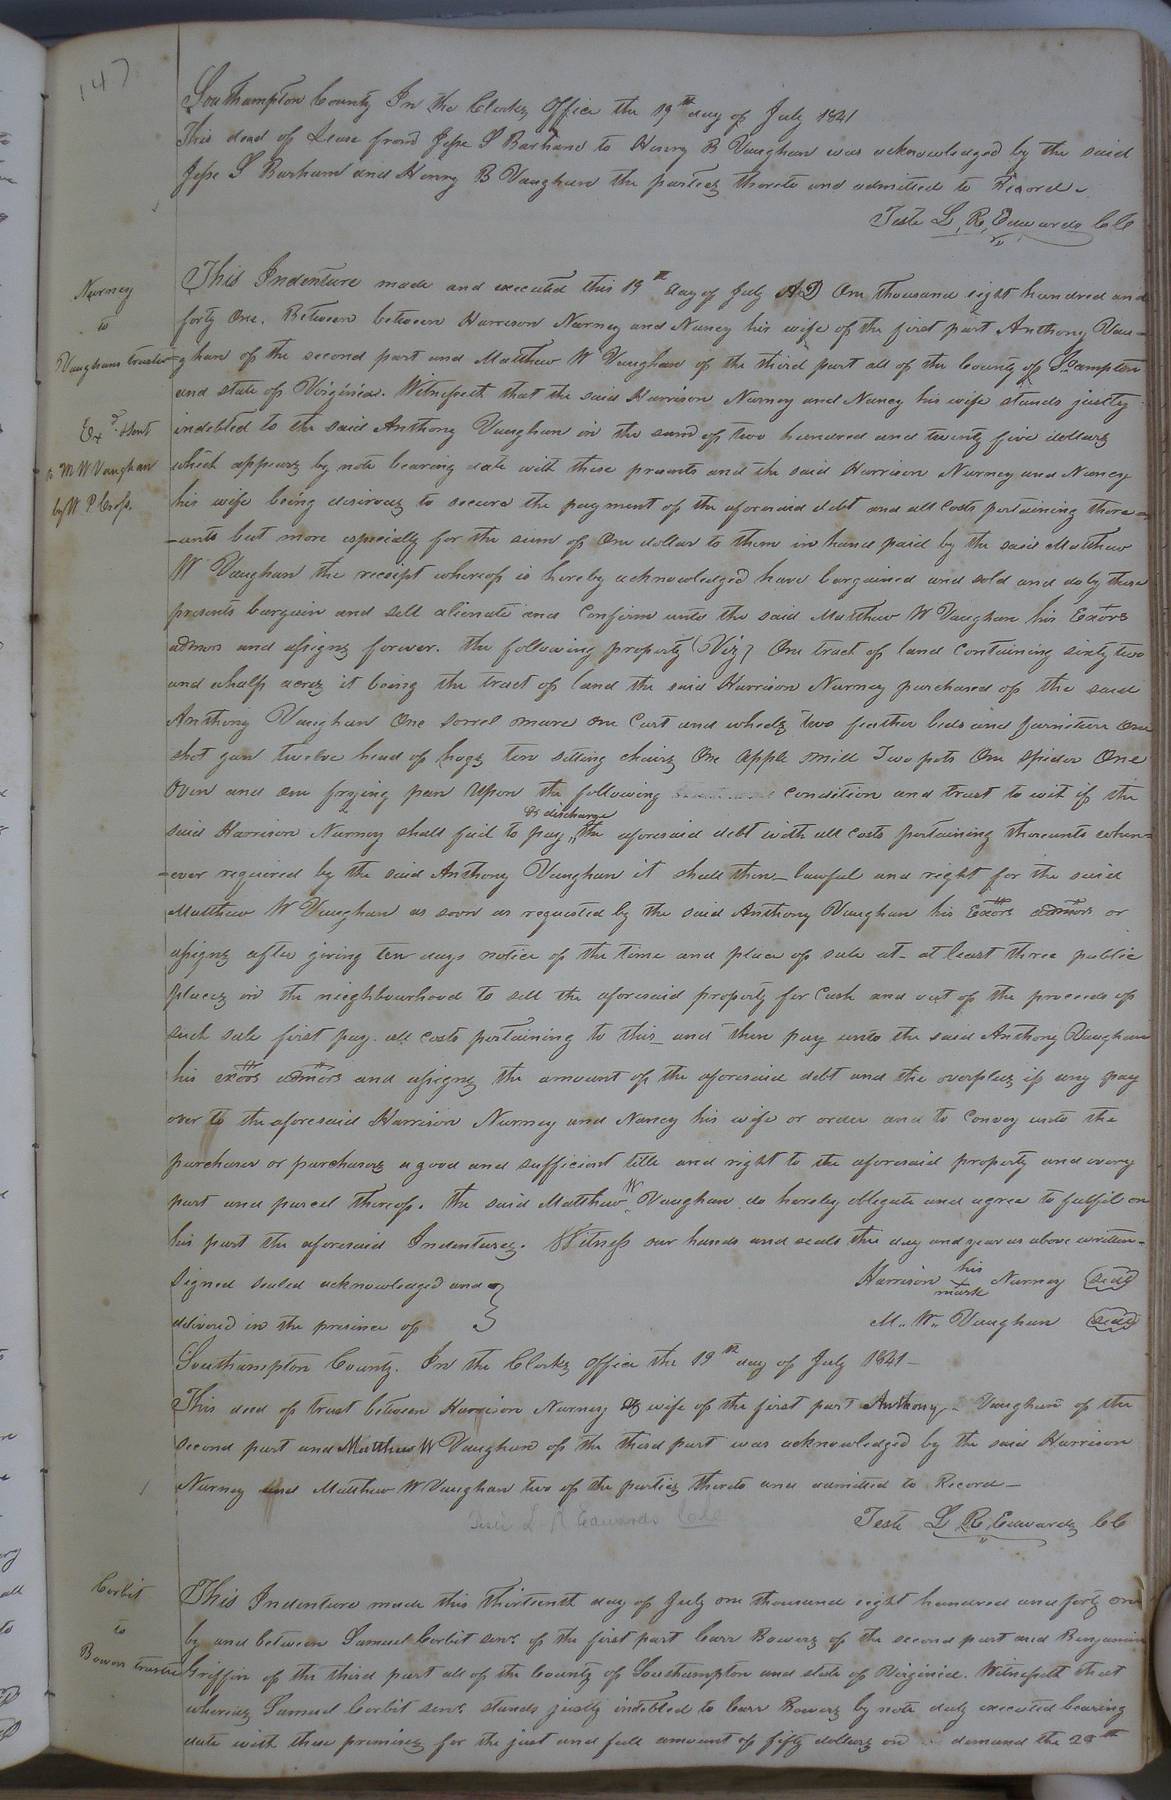 147
Southampton County In the Clerks Office the 19th day of July 1841
This deed of Lease from Jesse S Barham to Henry B Vaughan was acknowledged by the said
Jesse S Barham and Henry B Vaughan the parties thereto and admitted to Record-
Teste L, R, Edwards CC
Nurney
to
Vaughans trustee
Exd & sent
to M W Vaughan
by W P Cross.
This Indenture made and executed this 19th day of July AD One thousand eight hundred and
forty One. Between between Harrison Nurney and Nancy his wife of the first part Anthony Vau-
ghan of the second part and Matthew W Vaughan of the third part all of the County of S.ampton
and state of Virginia. Witnesseth that the said Harrison Nurney and Nancy his wife stands justly
indebted to the said Anthony Vaughan in the sum of two hundred and twenty five dollars
which appears by note bearing date with these presents and the said Harrison Nurney and Nancy
his wife being desirous to secure the payment of the aforesaid debt and all costs pertaining there
-unto but more especially for the sum of One dollar to them in hand paid by the said Matthew
W Vaughan the receipt whereof is hereby acknowledged have bargained and sold and do by these
presents bargain and sell alienate and Confirm unto the said Matthew W Vaughan his Exors
admors and assigns forever. the following property (Viz) One tract of land Containing sixty two
and ahalf acres it being the tract of land the said Harrison Nurney purchased of the said
Anthony Vaughan One sorrel mare one Cart and wheels two feather beds and furniture One
shot gun twelve head of hogs ten sitting chairs One apple mill Two pots One spider One
Oven and one frying pan Upon the following condition and trust to wit if the
said Harrison Nurney shall fail to pay & discharge the aforesaid debt with all costs pertaining thereunto when-
-ever required by the said Anthony Vaughan it shall then- lawful and right for the said
Matthew W Vaughan as soon as requested by the said Anthony Vaughan his Exors admors or
assigns after giving ten days notice of the time and place of sale at- at least three public
places in the neighbourhood to sell the aforesaid property for Cash and out of the proceeds of
such sale first pay all costs pertaining to this- and then pay unto the said Anthony Vaughan
his exors admors and assigns the amount of the aforesaid debt and the overplus if any pay
over to the aforesaid Harrison Nurney and Nancy his wife or order and to Convey unto the
purchaser or purchasers a good and sufficient title and right to the aforesaid property and every
part and parcel thereof. the said Matthew W Vaughan do hereby obligate and agree to fulfil on
his part the aforesaid Indentures. Witness our hands and seals the day and year as above written-
Signed sealed acknowledged and
Harrison his x mark Nurney seal
delivered in the presence of
M.. W.. Vaughan seal
Southampton County. In the Clerks office the 19th day of July 1841-
This deed of trust between Harrison Nurney & wife of the first part Anthony- Vaughan of the
second part and Matthew W Vaughan of the third part was acknowledged by the said Harrison
Nurney and Matthew W Vaughan two of the parties thereto and admitted to Record-
Teste L. R Edwards
Teste L R, Edwards CC
Corbit
to
Bowers trustee
This Indenture made this Thirteenth day of July one thousand eight hundred and forty one
by and between Samuel Corbit senr. of the first part Carr Bowers of the second part and Benjamin
Griffin of the third part all of the County of Southampton and state of Virginia. Witnesseth that
whereas Samuel Corbit senr. stands justly indebted to Carr Bowers by note duly executed bearing
date with these premises for the just and full amount of fifty dollars on demand the 28th